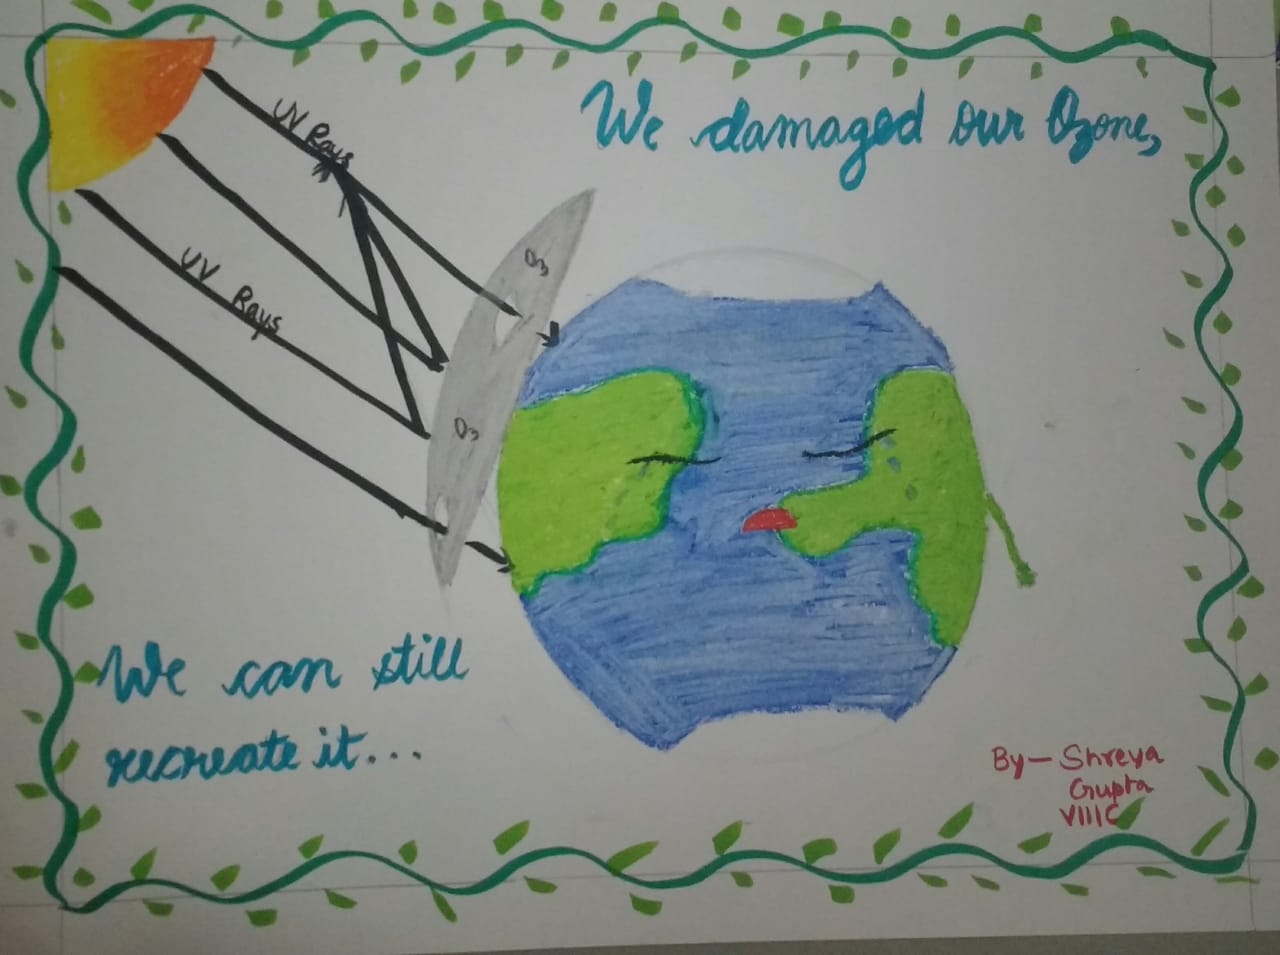 We damaged our Ozone,
UV Rays
UV Rays
O3
O3
We can still
recreate it...
By - Shreya
Gupta
VIIIC